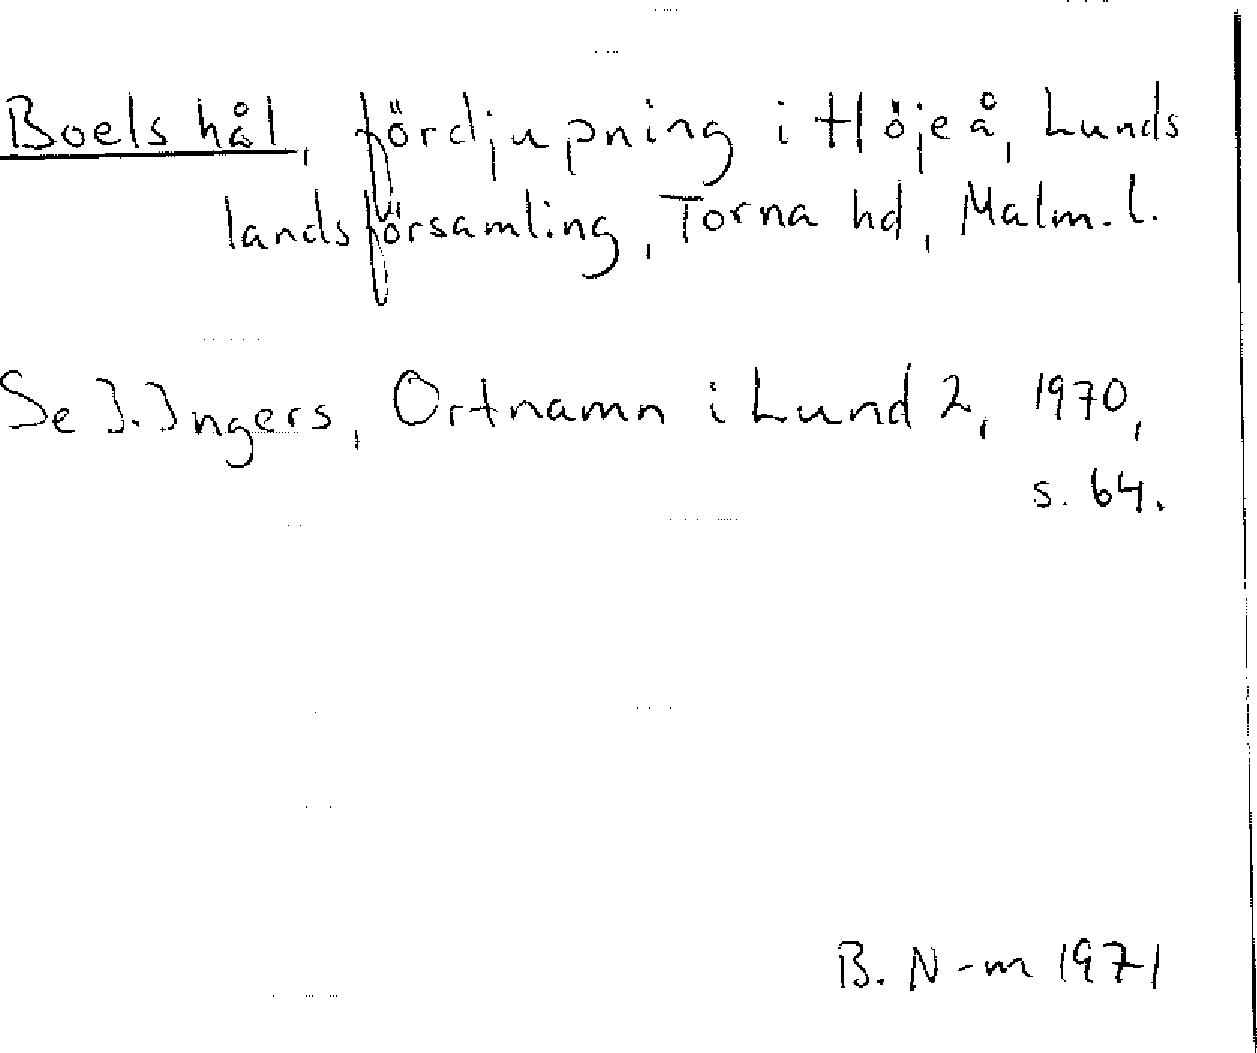 Boels hål, fördjupning i Höje å, Lunds
landsförsamling, Torna hd, Malm. l.
Se I. Ingers, Ortnamn i Lund 2, 1970,
s. 64.
B. N-m 1971